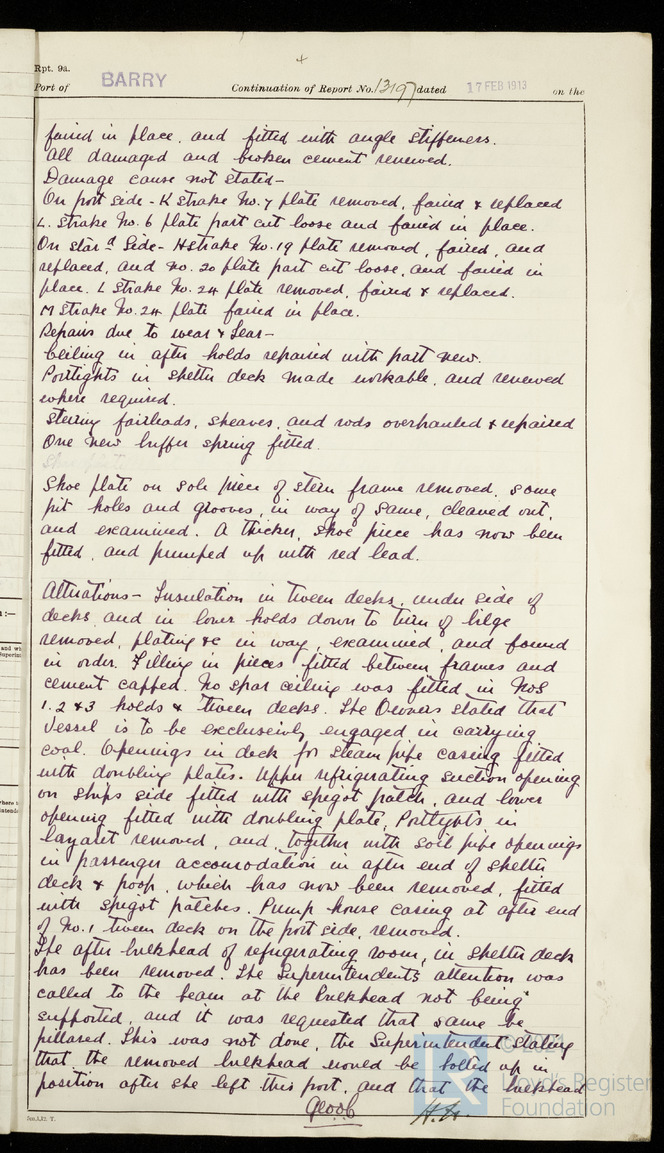 4
Rpt. 9a.
Port of BARRY Continuation of Report No. 13197 dated 17 FEB 1913 on the
faired in place, and fitted with angle stiffeners.
All damaged and broken cement renewed.
Damage cause not stated-
On port side - K strake No. 7 plate removed, faired & replaced
L. strake No. 6 plate part cut loose and faired in place.
On Starᵈ Side- H strake No. 19 plate removed, faired, and
replaced, and No. 20 plate part cut loose, and faired in
place. L strake No. 24 plate removed, faired & replaced.
M strake No. 24 plate faired in place.
Repairs due to wear & tear-
Ceiling in after holds repaired with part new.
Portlights in shelter deck made workable, and renewed
where required.
Steering fairleads, sheaves, and rods overhauled & repaired
One new buffer spring fitted.
Shoe plate on sole piece of stern frame removed, some
pit holes and grooves, in way of same, cleaned out,
and examined. A thicker, shoe piece has now been
fitted, and pumped up with red lead.
Alterations- Insulation in tween decks, under side of
decks, and in lower holds down to turn of bilge
removed, plating &c in way, examined, and found
in order. Filling in pieces fitted between frames and
cement capped. No spar ceiling was fitted in Nos
1. 2 & 3 holds & tween decks. The Owners stated that
Vessel is to be exclusively engaged in carrying
coal. Openings in deck for steam pipe casing fitted
with doubling plates. Upper refrigerating suction opening
on ships side fitted with spigot patch, and lower
opening fitted with doubling plate. Portlights in
lazaret removed, and, together with soil pipe openings
in passenger accomodation in after end of shelter
deck & poop, which has now been removed, fitted
with spigot patches. Pump house casing at after end
of No. 1 tween deck on the port side, removed.
The after bulkhead of refrigerating room, in shelter deck
has been removed. The Superintendent's attention was
called to the beam at the bulkhead not being
supported, and it was requested that same be
pillared. This was not done, the Superintendent stating
that the removed bulkhead would be bolted up in
position after she left this port, and that the bulkhead
© 2021
Lloyd's Register
Foundation